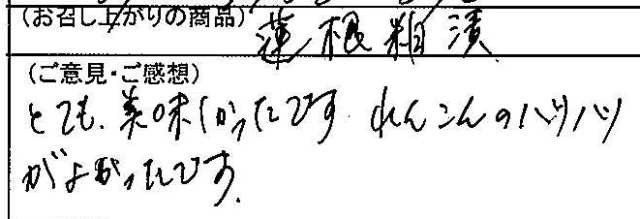 (お召し上がりの商品) 蓮根粕漬
(ご意見・ご感想)
とても、美味しかったです れんこんのハリハリ
がよかったです。